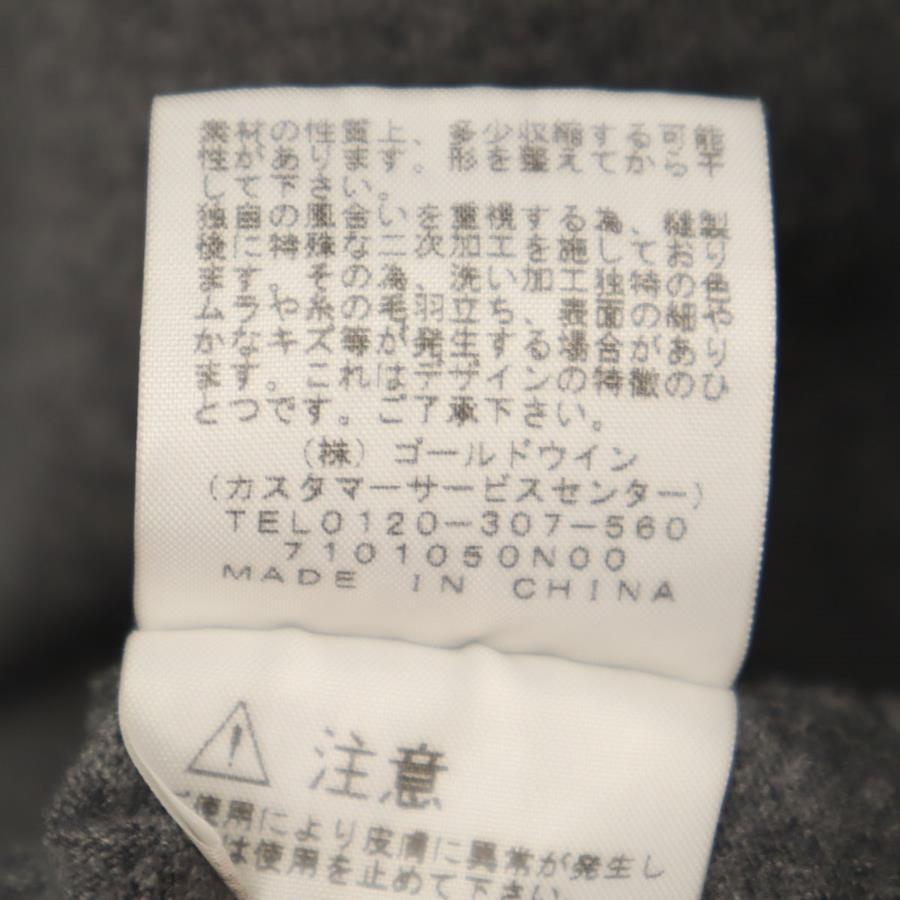 素材の性質上、多少収縮する可能
性があります。形を整えてから干
して下さい。
独自の風合いを重視する為、縫製
後に特殊な二次加工を施しており
ます。その為、洗い加工独特の色
ムラや糸の毛羽立ち、表面の細や
かなキズ等が発生する場合があり
ます。これはデザインの特徴のひ
とつです。ご了承下さい。
(株) ゴールドウイン
(カスタマーサービスセンター)
TEL0120-307-560
7101050N00
MADE IN CHINA
注意
ご使用により皮膚に異常が発生し
は使用を止めて下さい